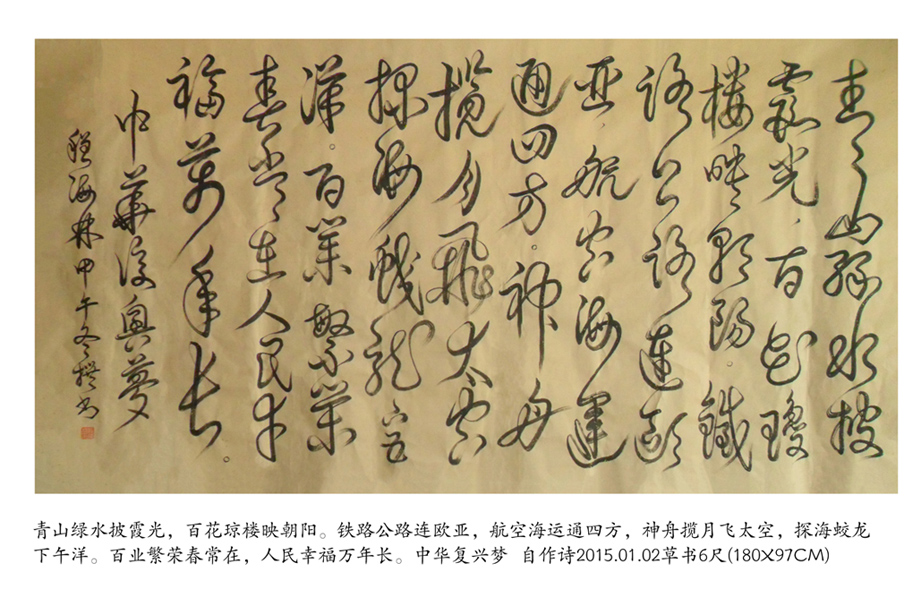 青山緑水披
霞光，百花瓊
楼映朝陽。鐵
路公路連歐
亚，航空海運
通四方。神舟
揽月飛太空
探海蛟龍下五
洋。百業繁榮
春常在人民幸
福萬年長。
中華復興夢
程海林甲午冬撰书
青山绿水披霞光，百花琼楼映朝阳。铁路公路连欧亚，航空海运通四方，神舟揽月飞太空，探海蛟龙
下午洋。百业繁荣春常在，人民幸福万年长。中华复兴梦 自作诗2015.01.02草书6尺(180X97CM)